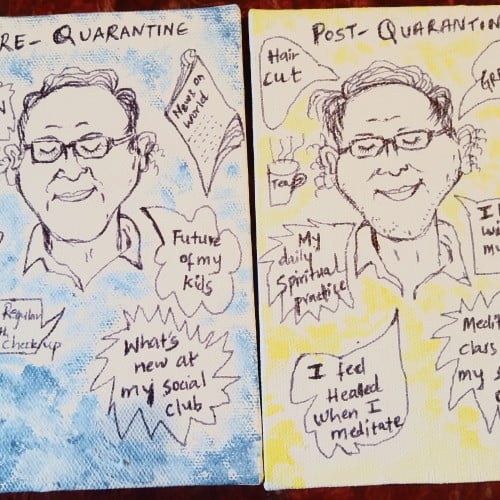 RE- QUARANTINE
News on
world
Future
of my
kids
Regular
check up
What's
new at
my social
club
POST- QUARANTIN
Hair
cut
Tea
My
daily
Spiritual
practice
I
my
I feel
Healed
when I
meditate
Medit
class
my s